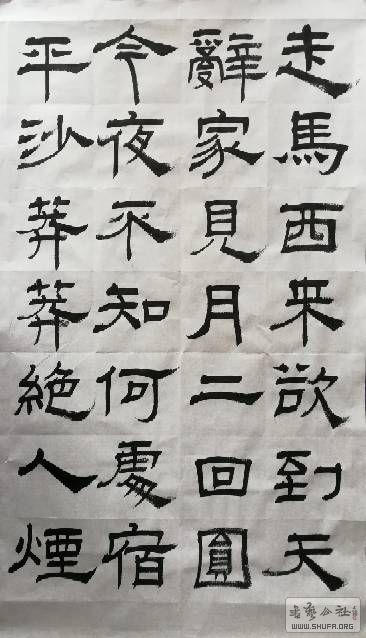 走馬西来欲到天
辭家見月二回圓
今夜不知何處宿
平沙莽莽絶人煙
WWW.SHUFA.ORG